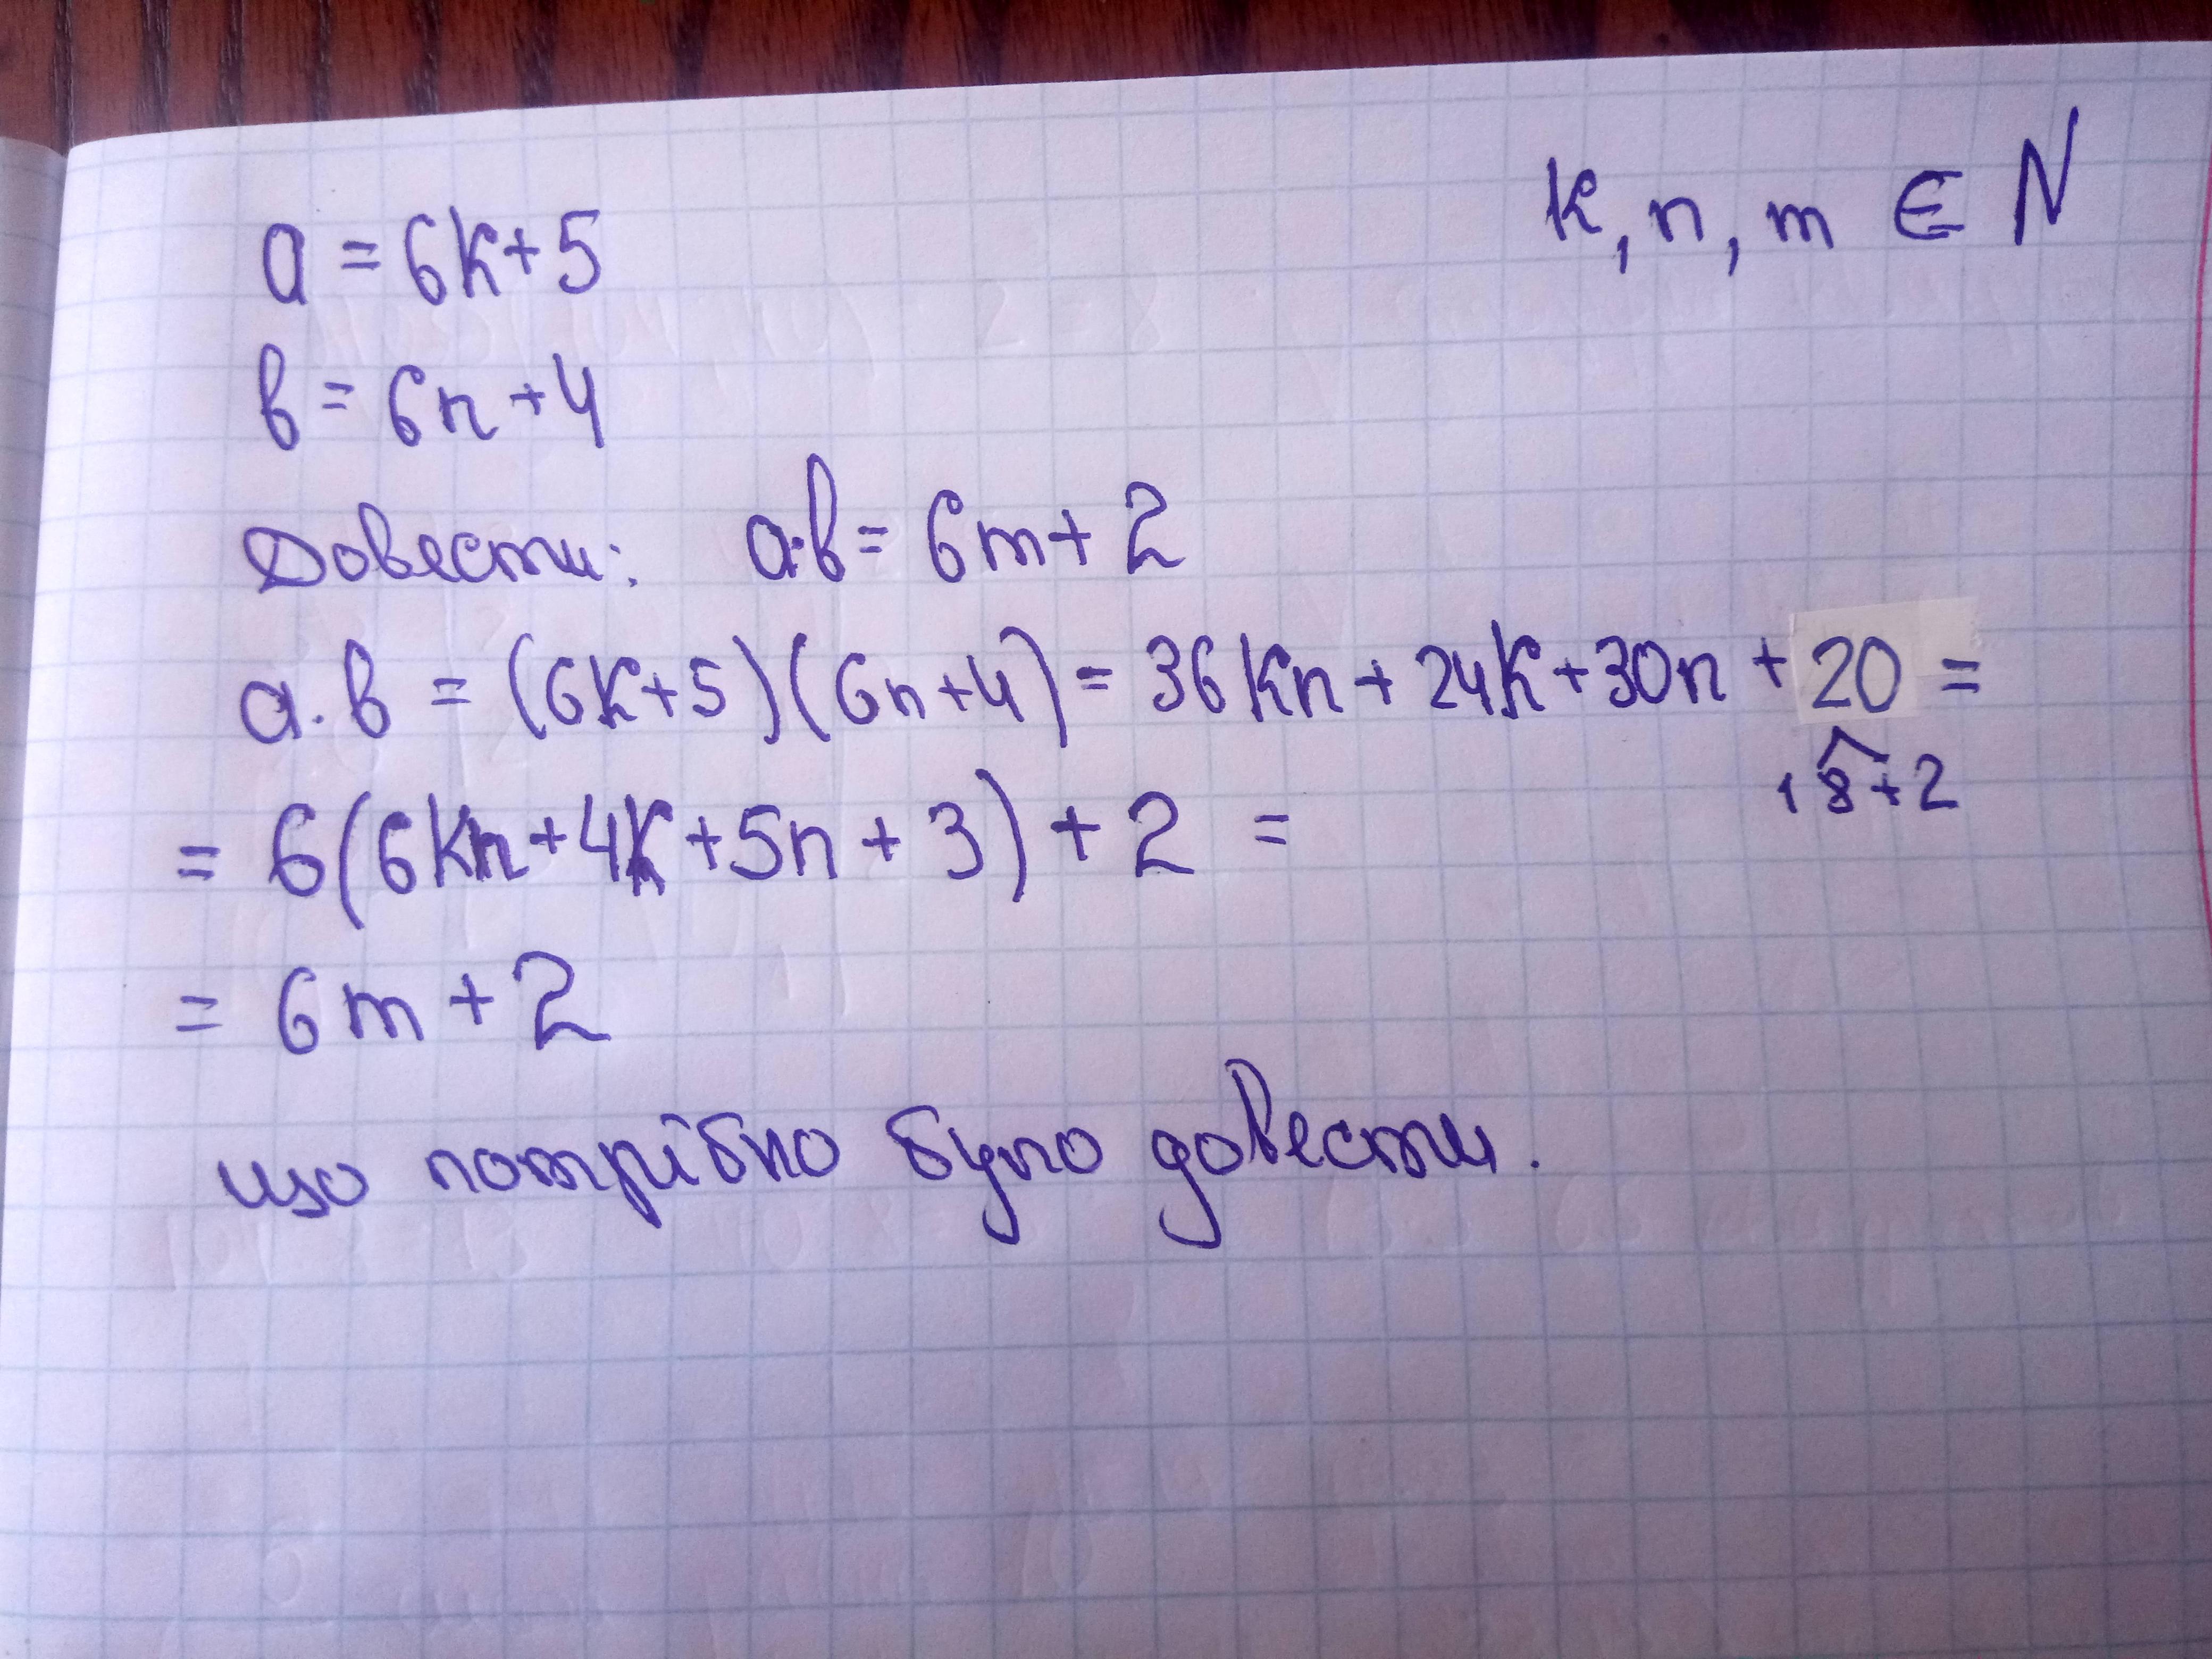 k, n, m ∈ N
a = 6k+5
b = 6n+4
Довести: a·b = 6m+2
a·b = (6k+5)(6n+4) = 36kn+24k+30n+20 =
18+2
= 6(6kn+4k+5n+3)+2 =
= 6m+2
що потрібно було довести.